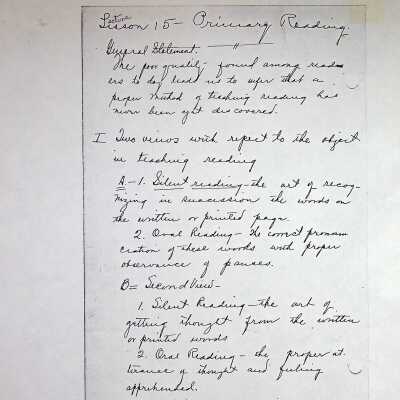 Lecture
Lesson 15 - Primary Reading
General Statement. - " -
The poor quality found among read-
ers to day leads us to infer that a
proper method of teaching reading has
never been yet discovered.
I Two views with repect to the object
in teaching reading
A - 1. Silent reading - the art of recog-
nizing in succession the words on
the written or printed page.
2. Oral Reading - The correct pronun
ciation of these words with proper
observance of pauses.
B = Second View -
1. Silent Reading - the art of
getting thought from the written
or printed words
2. Oral Reading - the proper ut-
terance of thought and feeling
apprehended.